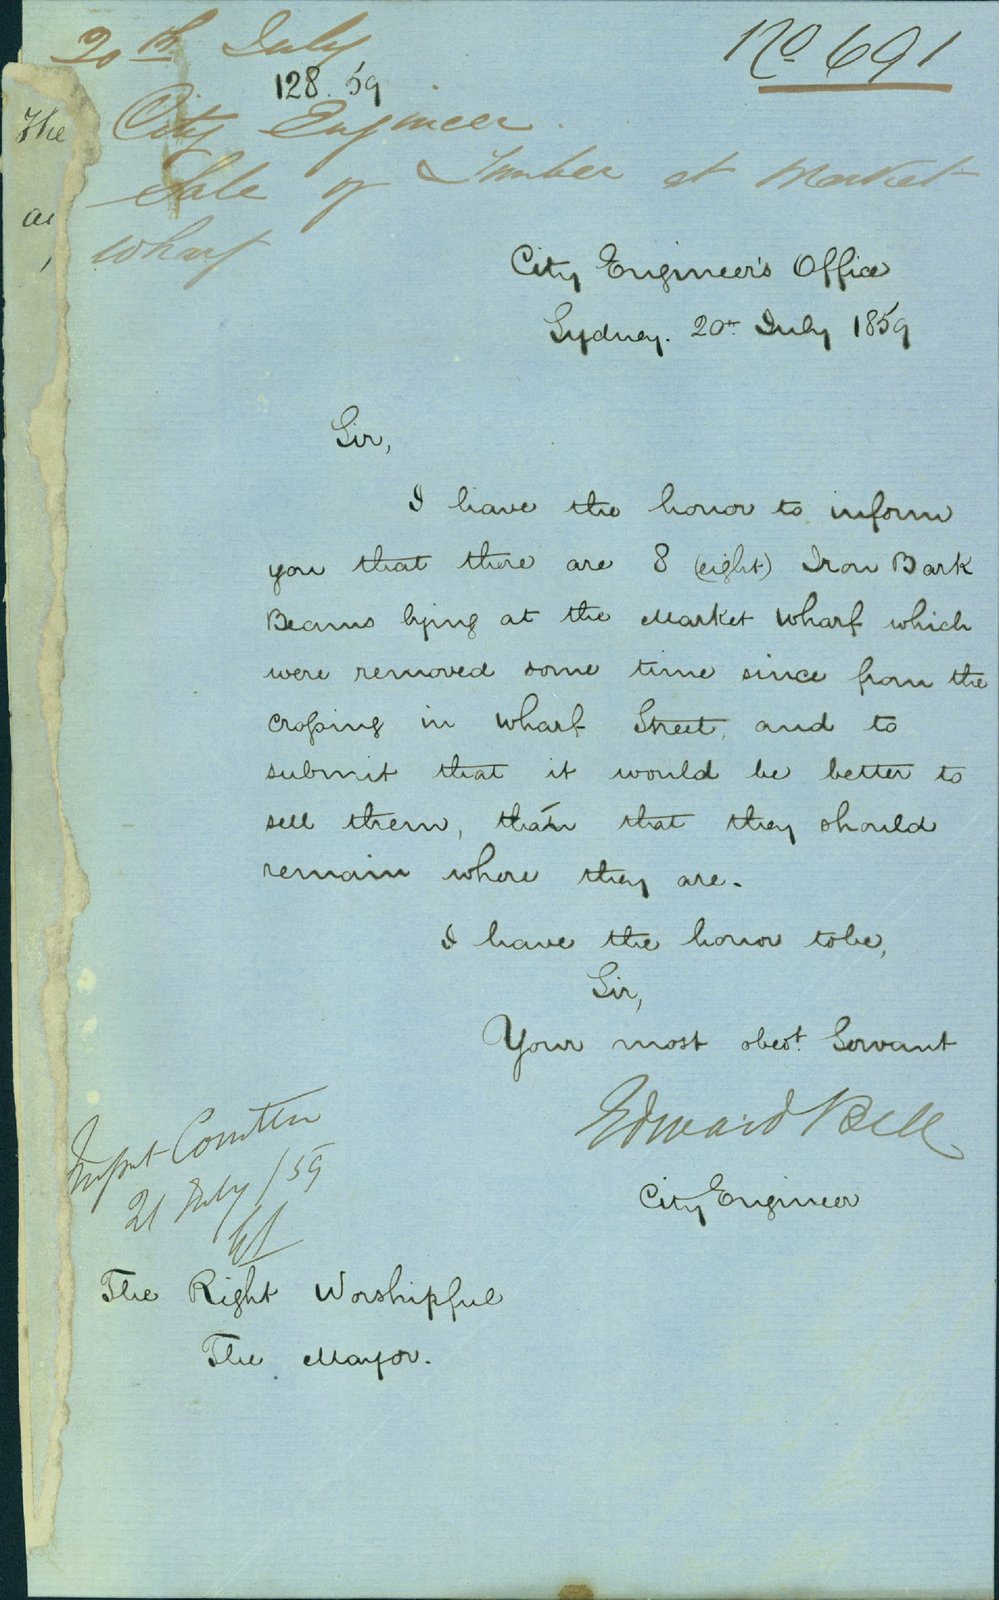 20th July
No 691
128. 59
City Engineer.
Sale of Timber at Market
Wharf
The
City Engineer's Office
Sydney. 20th July 1859
Sir,
I have the honor to inform
you that there are 8 (eight) Iron Bark
Beams lying at the Market Wharf which
were removed some time since from the
Crossing in Wharf Street, and to
submit that it would be better to
sell them, than that they should
remain where they are.
I have the honor to be,
Sir,
Your most obedt. Servant
Edward Bell
City Engineer
Comtee
21 July /59
The Right Worshipful
The Mayor.